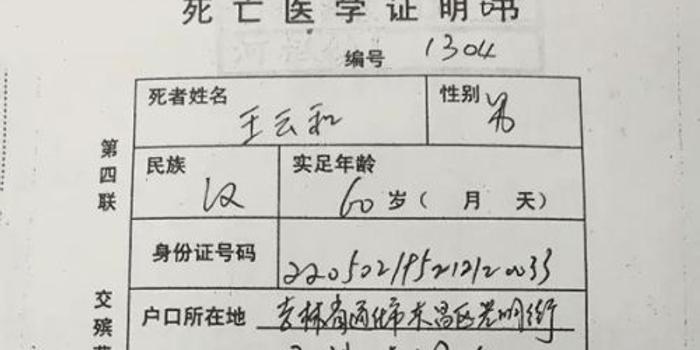 死亡医学证明书
编号 1304
死者姓名 王云和 性别 男
第四联
民族 汉 实足年龄 60岁( 月 天)
身份证号码 220502195212120033
交殡
户口所在地 吉林省通化市东昌区光明街